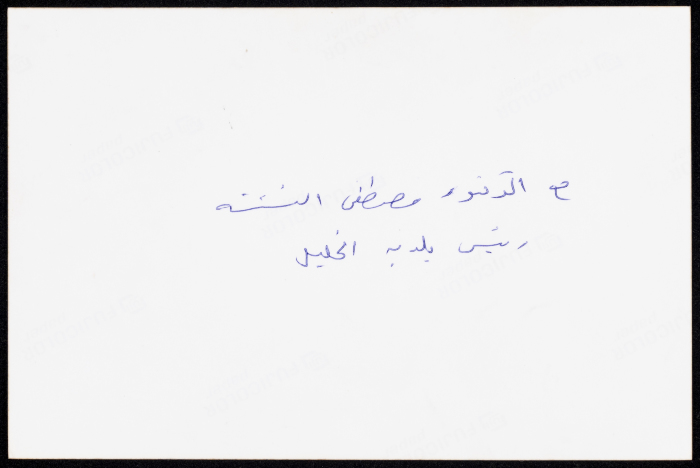 مع الدكتور مصطفى النتشه
رئيس بلدية الخليل